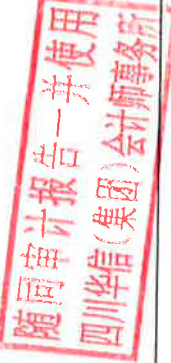 随同审计报告一并使用
四川华信(集团)会计师事务所